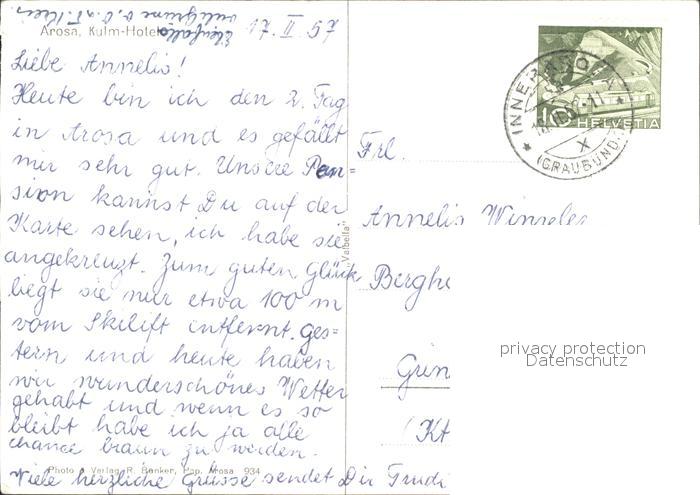 17. II. 57
Arosa, Kulm-Hotel
Liebe Annelis!
Heute bin ich den 2. Tag
in Arosa und es gefällt
mir sehr gut. Unsere Pen=
sion kannst Du auf der
Karte sehen, ich habe sie
angekreuzt. Zum guten Glück
liegt sie nur etwa 100 m
vom Skilift entfernt. Ges=
tern und heute haben
wir wunderschönes Wetter
gehabt und wenn es so
bleibt habe ich ja alle
chance braun zu werden.
Photo u. Verlag R. Banker, Pap. Arosa 934
Viele herzliche Grüsse sendet Dir Trudi
"Valbella"
10 HELVETIA
INNERAROSA
(GRAUBÜND.)
X
Frl.
Annelis Winzeler
Bergh
Grün
(Kt
privacy protection
Datenschutz